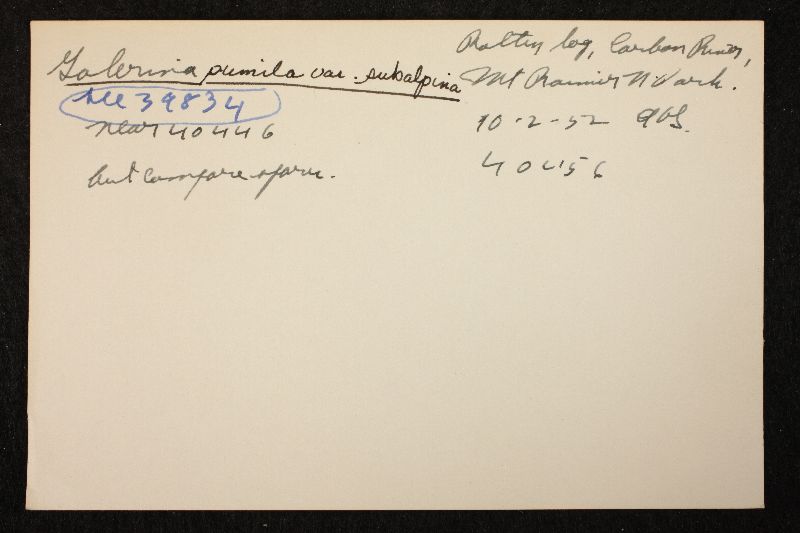 Galerina pumila var. subalpina
see 39834
near 40446
but compare spores.
Rotten log, Carbon River,
Mt Rainier N Park.
10-2-52 AHS.
40456